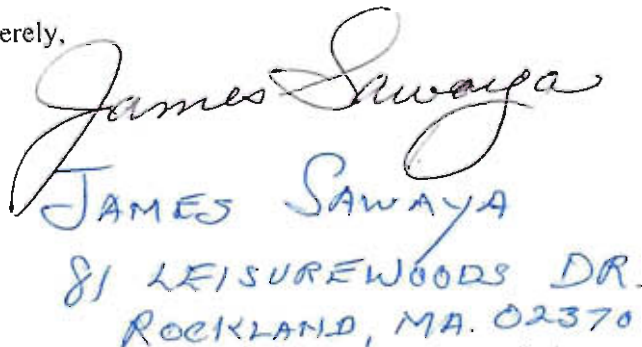 erely,
James Sawaya
JAMES SAWAYA
81 LEISUREWOODS DR.
ROCKLAND, MA. 02370